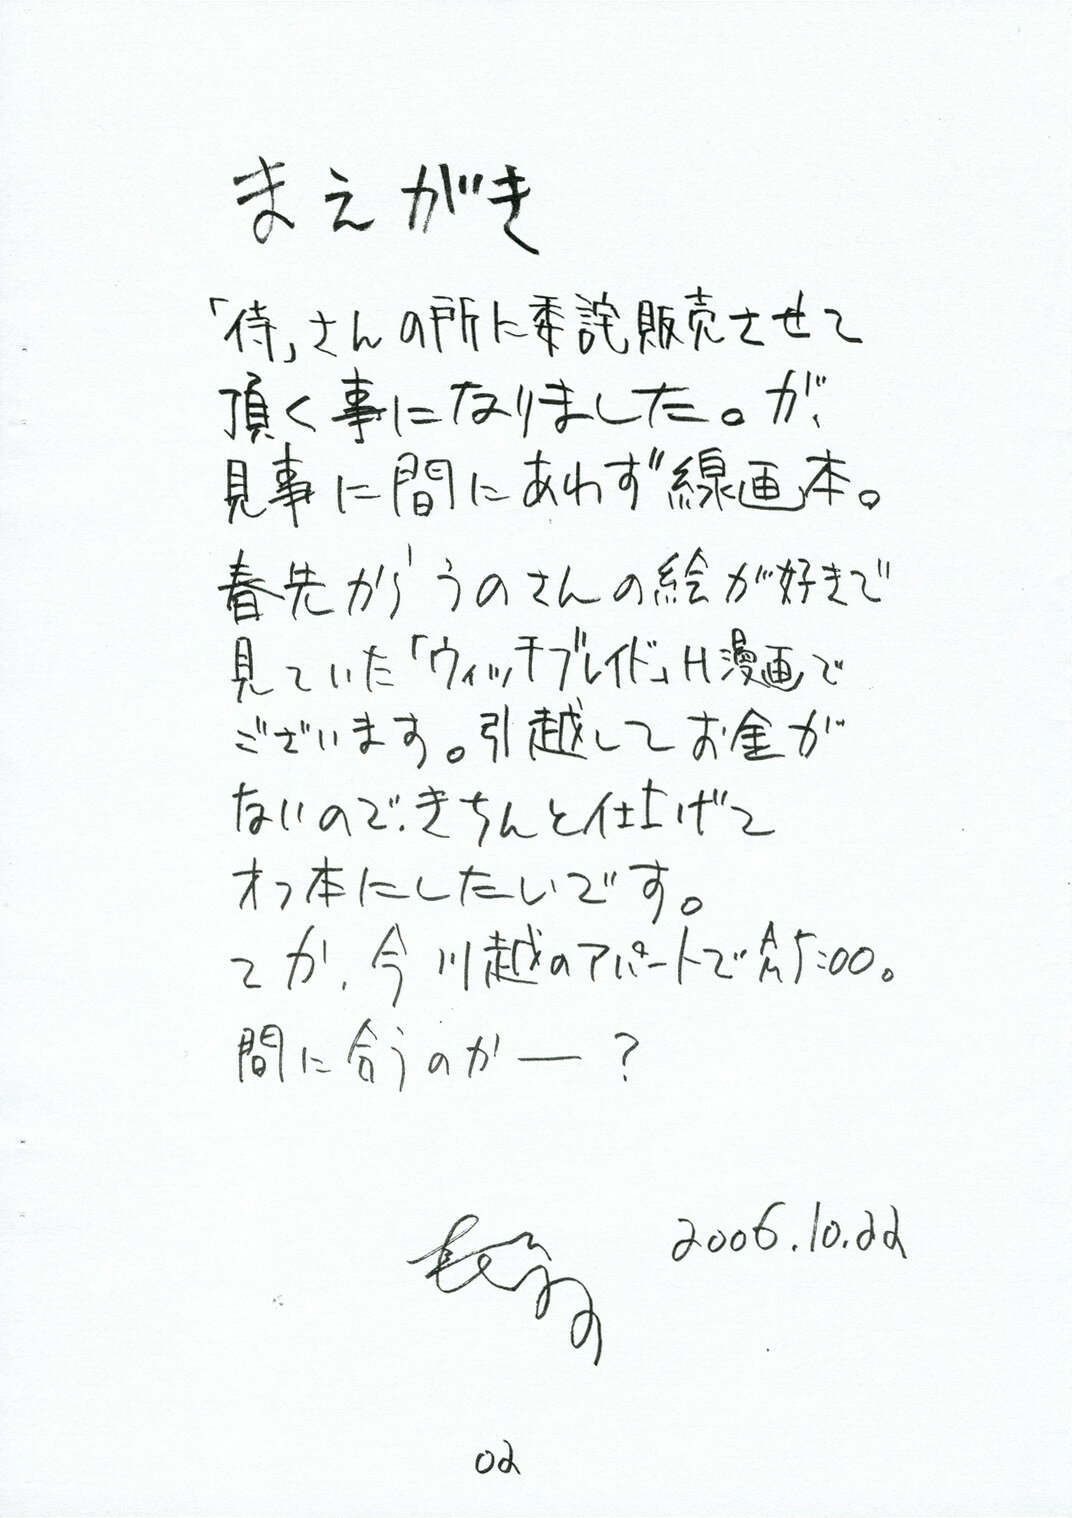 まえがき
「侍」さんの所に委託販売させて
頂く事になりました。が、
見事に間にあわず線画本。
春先からうのさんの絵が好きで
見ていた「ウィッチブレイド」H漫画で
ございます。引越してお金が
ないので、きちんと仕上げて
オフ本にしたいです。
てか、今川越のアパートで AM5:00。
間に合うのかー?
2006.10.22
02